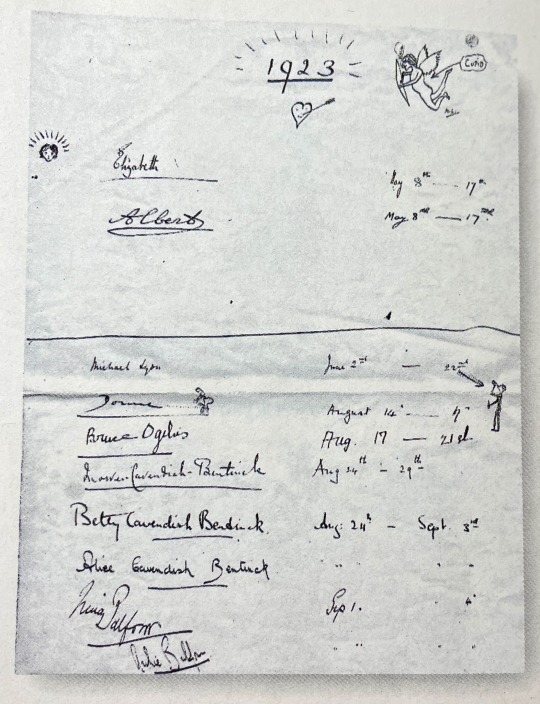 1923
Cupid
Elizabeth May 8th — 17th
Albert May 8th — 17th
Michael Lyon June 2nd — 22nd
August 14th —
Bruce Ogilvy Aug. 17 — 21st
Cavendish-Bentinck Aug 24th — 29th
Betty Cavendish Bentinck. Aug. 24th — Sept. 3rd
Alice Cavendish Bentinck " " "
Nina Balfour Sep 1. 4th
" " "